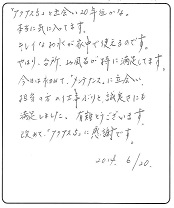 「アクアスを」と出会い20年位かな。
本当に気に入ってます。
キレイなお水が家中で使えるのです。
やはり、台所、お風呂が特に満足してます。
今日は初めて、「メンテナンス」に立会い、
担当の方の仕事ぶりと誠実さにも
満足しました。有難うございます。
改めて、「アクアスを」に感謝です。
2014. 6/20.